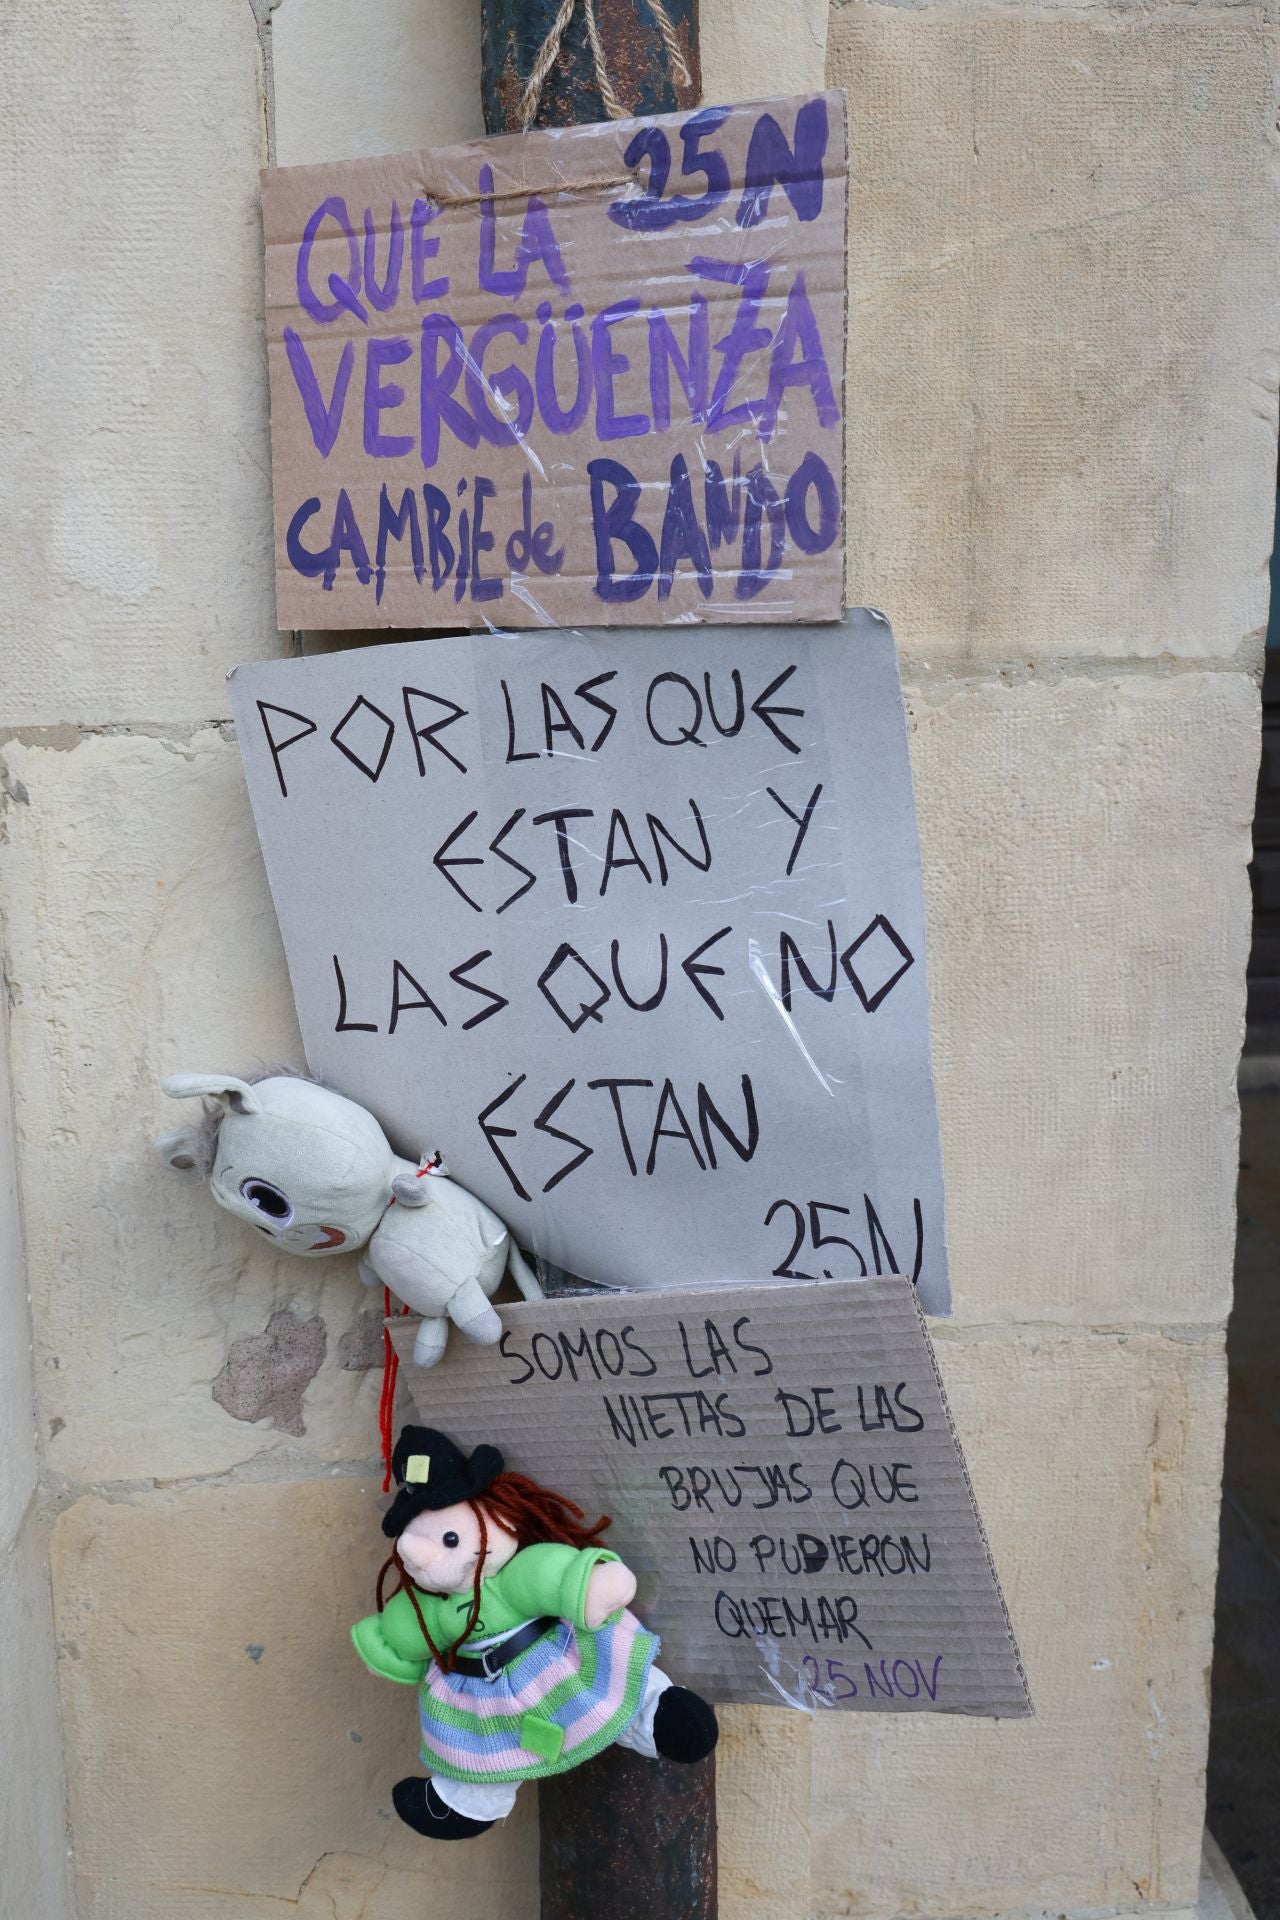 25N
QUE LA
VERGÜENZA
CAMBIE de BANDO
POR LAS QUE
ESTAN Y
LAS QUE NO
ESTAN
25N
SOMOS LAS
NIETAS DE LAS
BRUJAS QUE
NO PUDIERON
QUEMAR
25 NOV